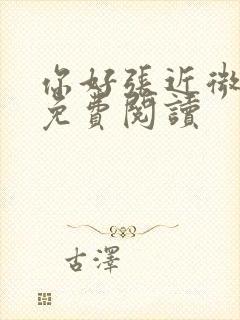 你好張近微
免費閱讀
古澤